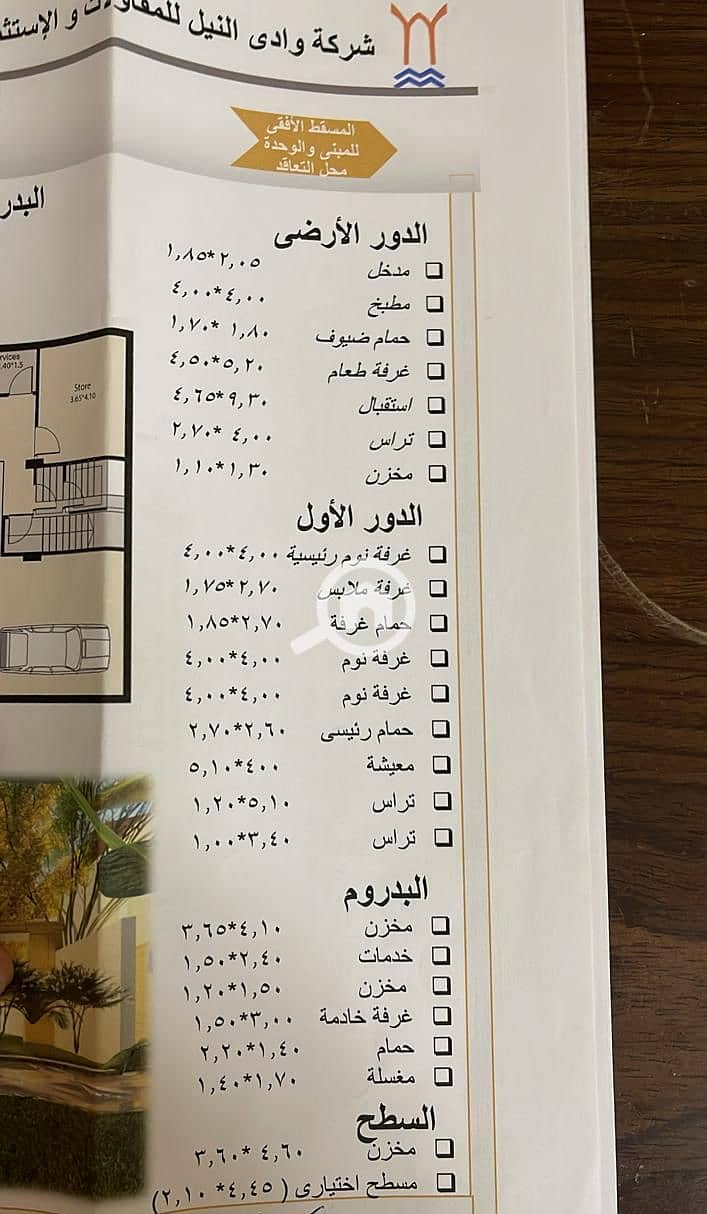 شركة وادى النيل للمقاولات و الإستث
المسقط الأفقى
للمبنى والوحدة
محل التعاقد
البدر
الدور الأرضى
❑ مدخل ٢,٠٥*١,٨٥
❑ مطبخ ٤,٠٠*٤,٠٠
❑ حمام ضيوف ١,٨٠ *١,٧٠
❑ غرفة طعام ٥,٢٠*٤,٥٠
❑ استقبال ٩,٣٠*٤,٦٥
❑ تراس ٤,٠٠ *٢,٧٠
❑ مخزن ١,٣٠*١,١٠
الدور الأول
❑ غرفة نوم رئيسية ٤,٠٠*٤,٠٠
❑ غرفة ملابس ٢,٧٠*١,٧٥
❑ حمام غرفة ٢,٧٠*١,٨٥
❑ غرفة نوم ٤,٠٠*٤,٠٠
❑ غرفة نوم ٤,٠٠*٤,٠٠
❑ حمام رئيسى ٢,٦٠*٢,٧٠
❑ معيشة ٤٠٠*٥,١٠
❑ تراس ٥,١٠*١,٢٠
❑ تراس ٣,٤٠*١,٠٠
البدروم
❑ مخزن ٤,١٠*٣,٦٥
❑ خدمات ٢,٤٠*١,٥٠
❑ مخزن ١,٥٠*١,٢٠
❑ غرفة خادمة ٣,٠٠*١,٥٠
❑ حمام ١,٤٠*٢,٢٠
❑ مغسلة ١,٧٠*١,٤٠
السطح
❑ مخزن ٤,٦٠ *٣,٦٠
❑ مسطح اختيارى ( ٤,٤٥* ٢,١٠)
rvices
.40*1.5
Store
3.65*4.10